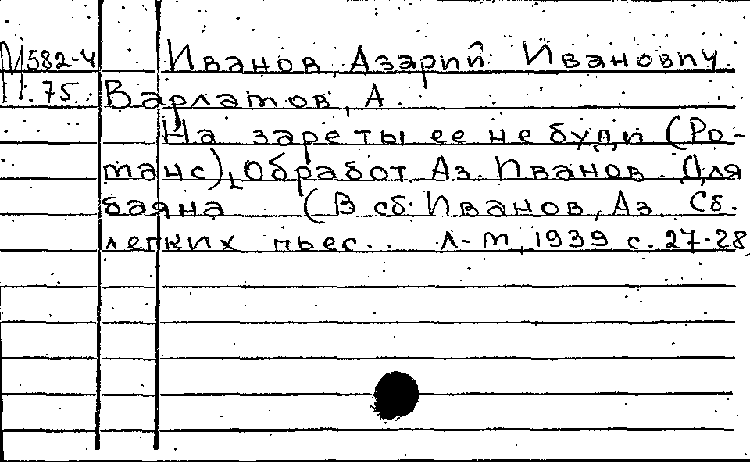 М582-4 Иванов, Азарий Иванович.
П.75 Варлатов, А.
На заре ты ее не буди (Ро-
манс), Обработ Аз. Иванов. Для
баяна (В сб. Иванов, Аз. Сб.
легких пьес.. Л-М, 1939 с. 27-28